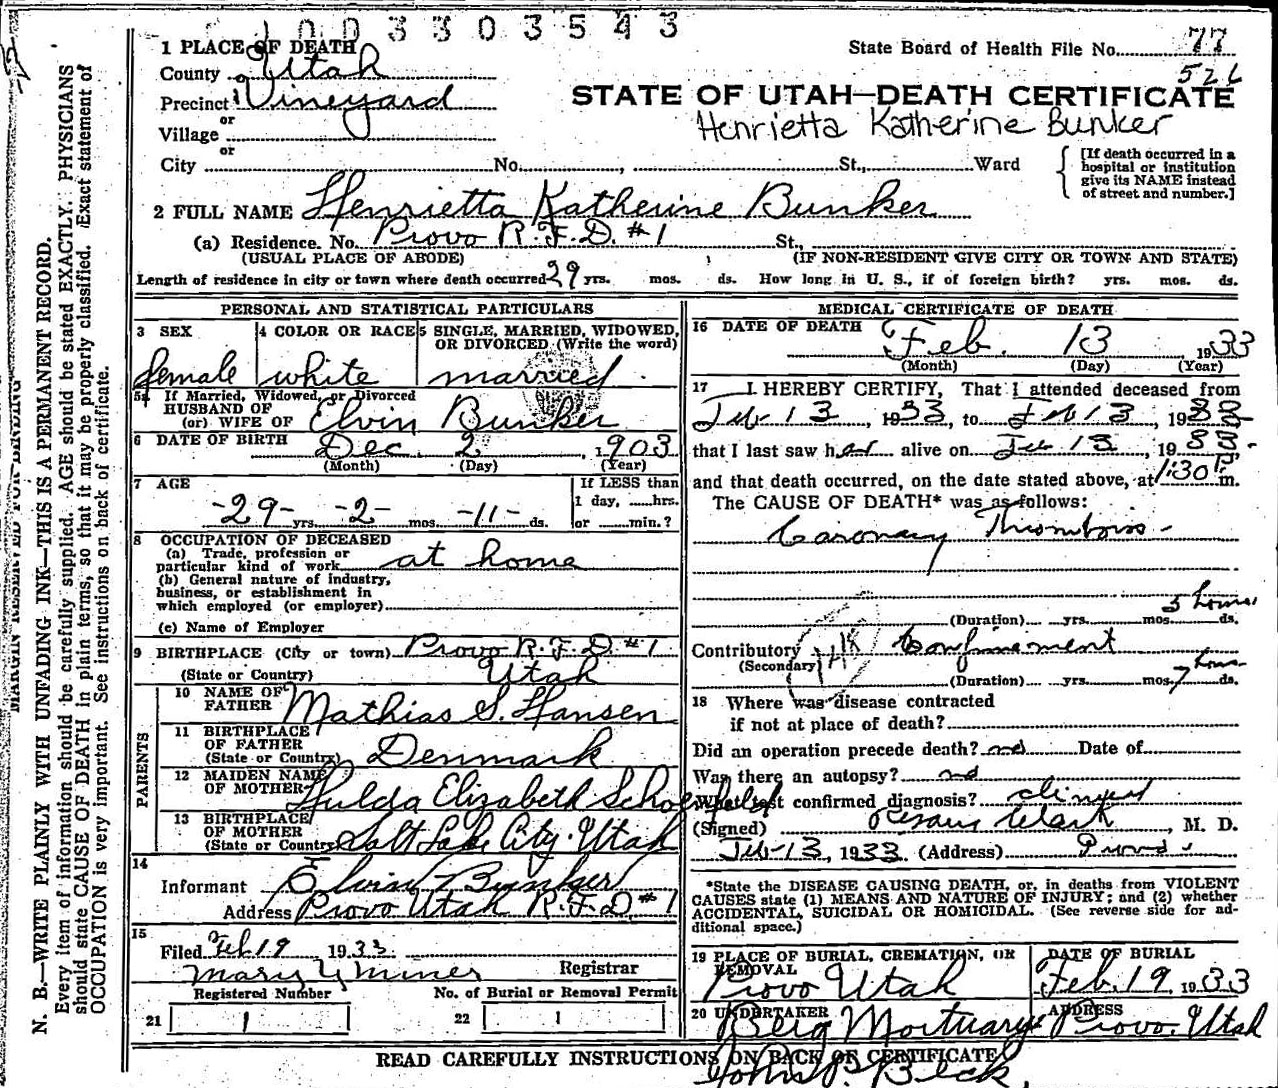 1003303543
1 PLACE OF DEATH
State Board of Health File No. 77
County Utah
526
Precinct Vineyard
STATE OF UTAH—DEATH CERTIFICATE
or
Village
Henrietta Katherine Bunker
or
City No. , St., Ward
[If death occurred in a
hospital or institution
give its NAME instead
of street and number.]
2 FULL NAME Henrietta Katherine Bunker
(a) Residence. No. Provo R.F.D. #1 St.,
(USUAL PLACE OF ABODE) (IF NON-RESIDENT GIVE CITY OR TOWN AND STATE)
Length of residence in city or town where death occurred 29 yrs. mos. ds. How long in U. S., if of foreign birth? yrs. mos. ds.
PERSONAL AND STATISTICAL PARTICULARS
3 SEX
female
4 COLOR OR RACE
white
5 SINGLE, MARRIED, WIDOWED,
OR DIVORCED (Write the word)
married
5a If Married, Widowed, or Divorced
HUSBAND OF
(or) WIFE OF Elvin Bunker
6 DATE OF BIRTH Dec. 2, 1903
(Month) (Day) (Year)
7 AGE
If LESS than
1 day, ......hrs.
or ......min.?
-29- yrs. -2- mos. -11- ds.
8 OCCUPATION OF DECEASED
(a) Trade, profession or
particular kind of work at home
(b) General nature of industry,
business, or establishment in
which employed (or employer)
(c) Name of Employer
9 BIRTHPLACE (City or town) Provo R.F.D. #1
(State or Country) Utah
PARENTS
10 NAME OF
FATHER Mathias S. Hansen
11 BIRTHPLACE
OF FATHER
(State or Country) Denmark
12 MAIDEN NAME
OF MOTHER Hulda Elizabeth Schoenfeld
13 BIRTHPLACE
OF MOTHER
(State or Country) Salt Lake City. Utah
14
Informant Elvin Bunker
Address Provo Utah R.F.D. #1
15
Filed Feb 19 1933
Mary Y Miner Registrar
Registered Number No. of Burial or Removal Permit
21 1 22 1
MEDICAL CERTIFICATE OF DEATH
16 DATE OF DEATH Feb. 13 1933
(Month) (Day) (Year)
17 I HEREBY CERTIFY, That I attended deceased from
Feb 13, 1933, to Feb 13, 1933
that I last saw her alive on Feb 13, 1933
and that death occurred, on the date stated above, at 1:30 P. m.
The CAUSE OF DEATH* was as follows:
Coronary Thrombosis
5 hours
(Duration) yrs. mos. ds.
Contributory Confinement
(Secondary)
7 hours
(Duration) yrs. mos. ds.
18 Where was disease contracted
if not at place of death?
Did an operation precede death? no Date of
Was there an autopsy? no
What test confirmed diagnosis? clinical
(Signed) Clark, M. D.
Feb-13, 1933. (Address) Provo
*State the DISEASE CAUSING DEATH, or, in deaths from VIOLENT
CAUSES state (1) MEANS AND NATURE OF INJURY; and (2) whether
ACCIDENTAL, SUICIDAL OR HOMICIDAL. (See reverse side for ad-
ditional space.)
19 PLACE OF BURIAL, CREMATION, OR
REMOVAL
Provo Utah
DATE OF BURIAL
Feb. 19 1933
20 UNDERTAKER
Berg Mortuary
ADDRESS
Provo. Utah
READ CAREFULLY INSTRUCTIONS ON BACK OF CERTIFICATE
John P. Beck
MARGIN RESERVED FOR BINDING
N. B.—WRITE PLAINLY WITH UNFADING INK—THIS IS A PERMANENT RECORD.
Every item of information should be carefully supplied. AGE should be stated EXACTLY. PHYSICIANS
should state CAUSE OF DEATH in plain terms, so that it may be properly classified. Exact statement of
OCCUPATION is very important. See instructions on back of certificate.